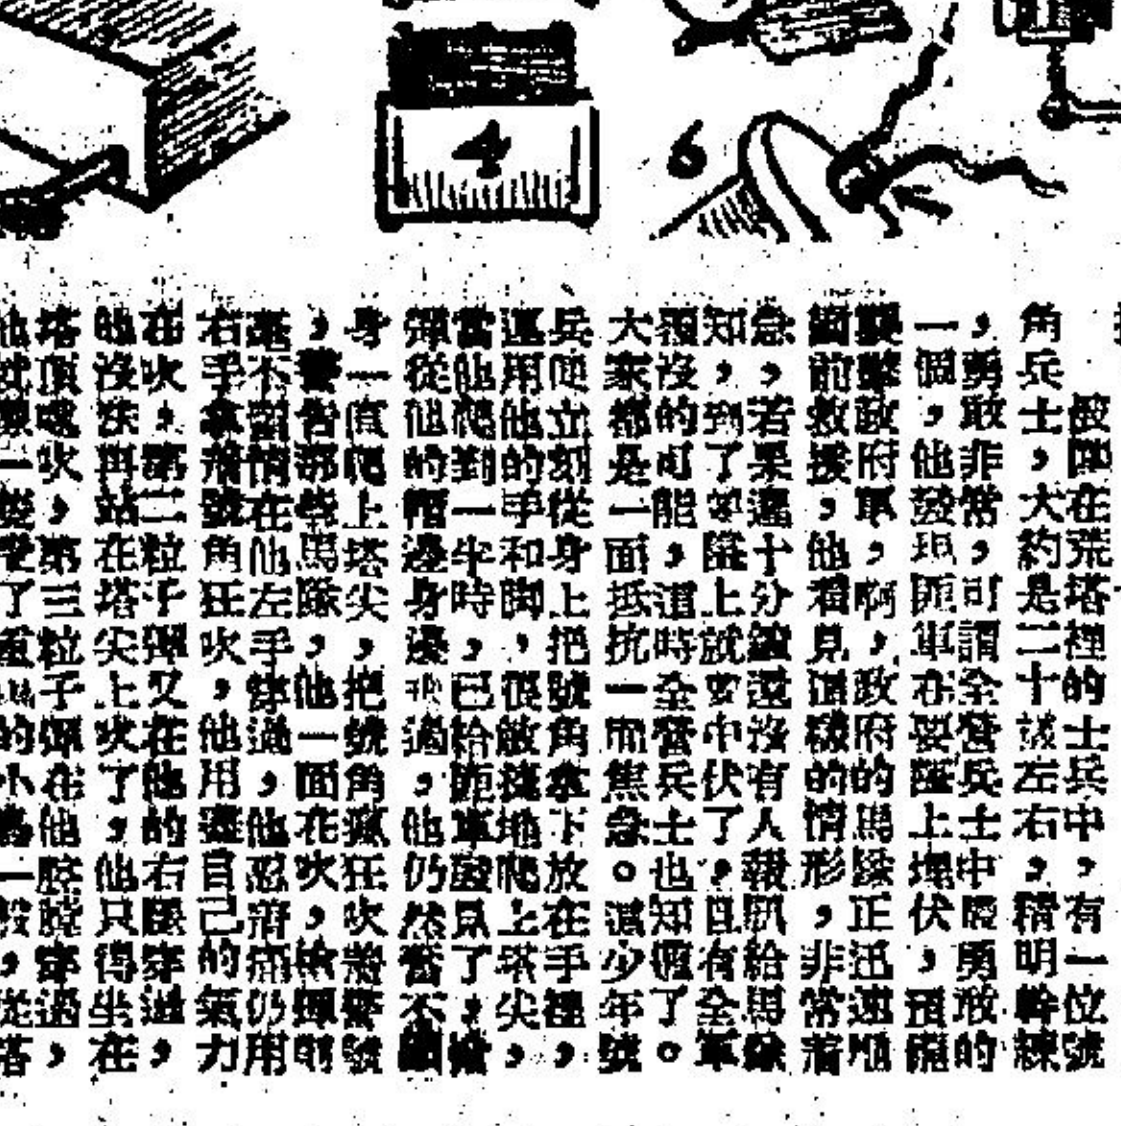 4
6
在荒塔裡的士兵中，有一位號
角兵士，大約是二十歲左右，精明幹練
，勇敢非常，可謂全營兵士中最勇敢的
一個，他發現匪軍在要隘上埋伏，預備
襲擊政府軍，啊，政府的馬隊正迅速順
前救援，他看見這樣的情形，非常着
急，若果遲十分鐘還沒有人報訊給馬隊
知，到了要隘上就要中伏了，且有全軍
覆沒的可能，這時全營兵士也知道了。
大家都是一面抵抗一面焦急。這少年號
兵便立刻從身上把號角拿下放在手裡，
運用他的手和脚，很敏捷地爬上塔尖，
當他爬到一半時，已給匪軍發見了，槍
彈從他的帽邊身邊飛過，他仍然奮不顧
身一直爬上塔尖，把號角瘋狂吹着警號
，警告那些馬隊，他一面在吹，槍彈
毫不留情在他左手，穿過，他忍着痛仍用
右手拿着號角狂吹，他用盡自己的氣力
在吹，第二粒子彈又在他的右腿穿過，
他沒法再站在塔尖上吹了，他只得坐在
塔頂處吹，第三粒子彈在他穿過，
他就像一受了重傷的小鳥一般，從塔